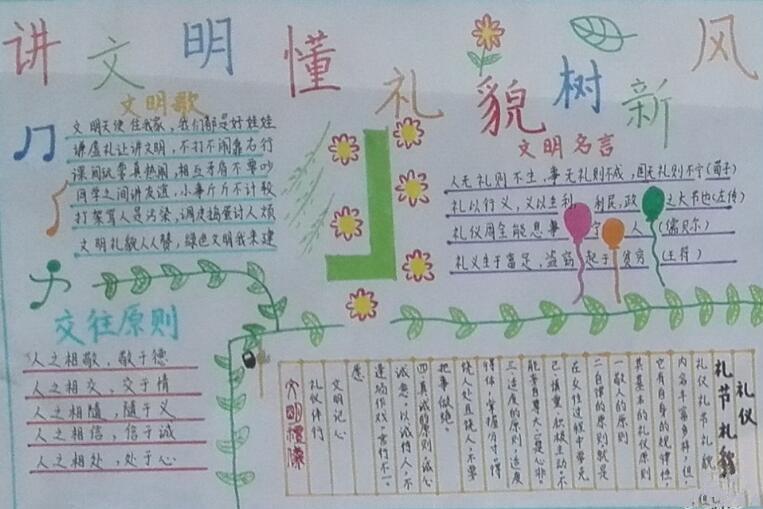 讲文明懂礼貌树新风
文明歌
文明天使住我家，我们都是好娃娃
谦虚礼让讲文明，不打不闹靠右行
课间玩耍真热闹，相互矛盾不要吵
同学之间讲友谊，小事斤斤不计较
打架骂人是污染，调皮捣蛋讨人烦
文明礼貌人人赞，绿色文明我来建
文明名言
人无礼则不生，事无礼则不成，国无礼则不宁(荀子)
礼以行义，义以生利，利民，政之大节也(左传)
礼仪周全能息事宁人(儒贝尔)
礼义生于富足，盗窃起于贫穷(王符)
交往原则
人之相敬，敬于德
人之相交，交于情
人之相随，随于义
人之相信，信于诚
人之相处，处于心
礼仪
礼节礼貌
礼仪礼节礼貌
内容丰富多样，但
它有自身的规律性，
其基本的礼仪原则
一敬人的原则
二自律的原则就是
在交往过程中要克
己、慎重、积极主动、不
能妄自尊大，口是心非。
三适度的原则，适度
得体，掌握分寸。得
饶人处且饶人，不要
把事做绝。
四真诚的原则诚心
诚意，以诚待人，不
逢场作戏，言行不一。
愿
文明记心
礼仪伴行
文明礼